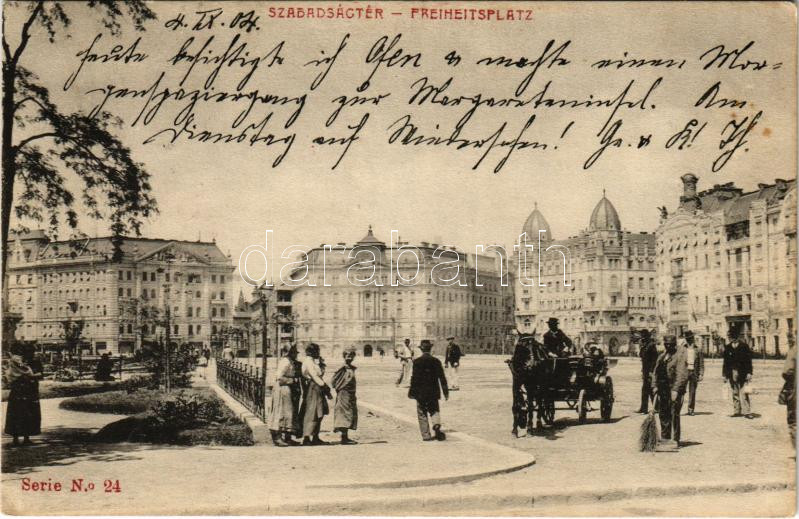 SZABADSÁGTÉR – FREIHEITSPLATZ
4. IX. 04.
heute besichtigte ich Ofen u machte einen Mor-
genspaziergang zur Margareteninsel. Am
Dienstag auf Wiedersehen! Gr. u K! Ih.
darabanth
Serie N.o 24